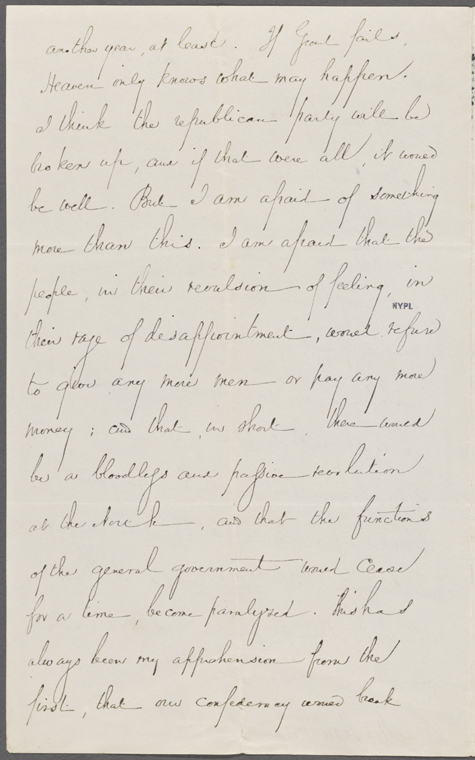 another year, at least. If Grant fails,
Heaven only knows what may happen.
I think the republican party will be
broken up, and if that were all, it would
be well. But I am afraid of something
more than this. I am afraid that the
people, in their revulsion of feeling, in
NYPL
their rage of disappointment, would refuse
to give any more men or pay any more
money; and that, in short, there would
be a bloodless and passive revolution
at the North, and that the functions
of the general government would cease
for a time, become paralyzed. This has
always been my apprehension from the
first, that our confederacy would break